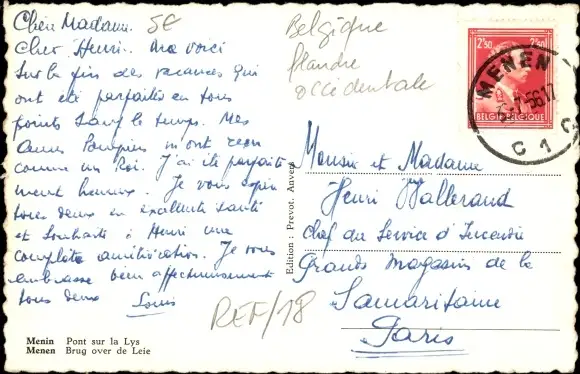 Chère Madame. 5€
Cher Henri. Me voici
sur la fin des vacances qui
ont été parfaites en tous
points sauf le temps. Mes
amis Pompiers m'ont reçu
comme un Roi. J'ai été parfaite
ment heureux. Je vous espère
tous deux en excellente santé
et souhaite à Henri une
complète amélioration. Je vous
embrasse bien affectueusement
tous deux Louis
Belgique
flandre
occidentale
2F50 2F50
BELGIE-BELGIQUE
MENEN
-7-56.17
C 1 C
Monsieur et Madame
Henri Vallerand
Chef du Service d'Incendie
Grands Magasins de la
Samaritaine
Paris
Edition : Prevot, Anvers
REF/18
Menin Pont sur la Lys
Menen Brug over de Leie